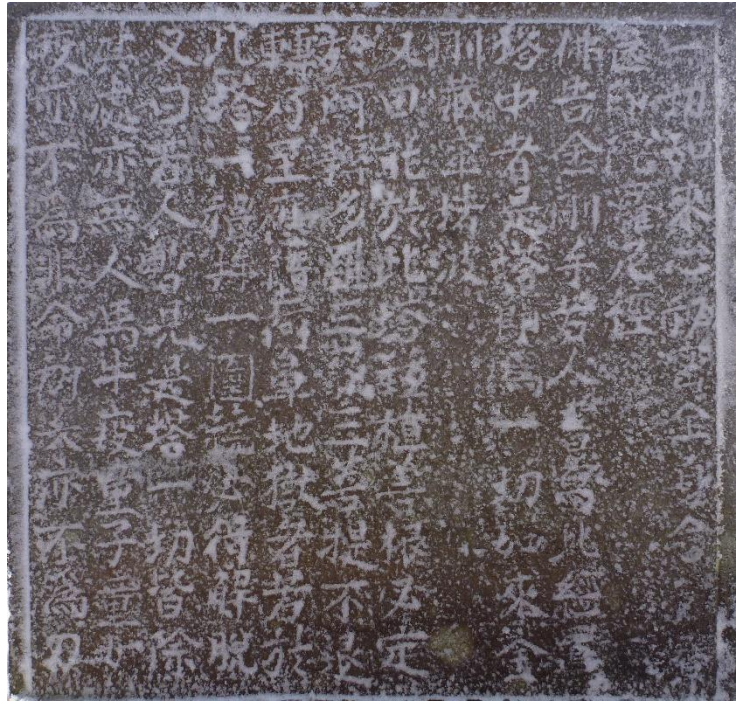 一切如來心祕密全身舍利
篋印陀羅尼經
佛告金剛手若人書寫此經置
塔中者是塔即爲一切如來金
剛藏窣堵波
又曰能於此塔種植善根必定
於阿耨多羅三藐三菩提不退
轉乃至應墮阿鼻地獄者若於
此塔一禮拜一圍繞必得解脫
又曰若人暫見是塔一切皆除
其處亦無人馬牛疫童子童女
疫亦不爲非命所夭亦不爲刀